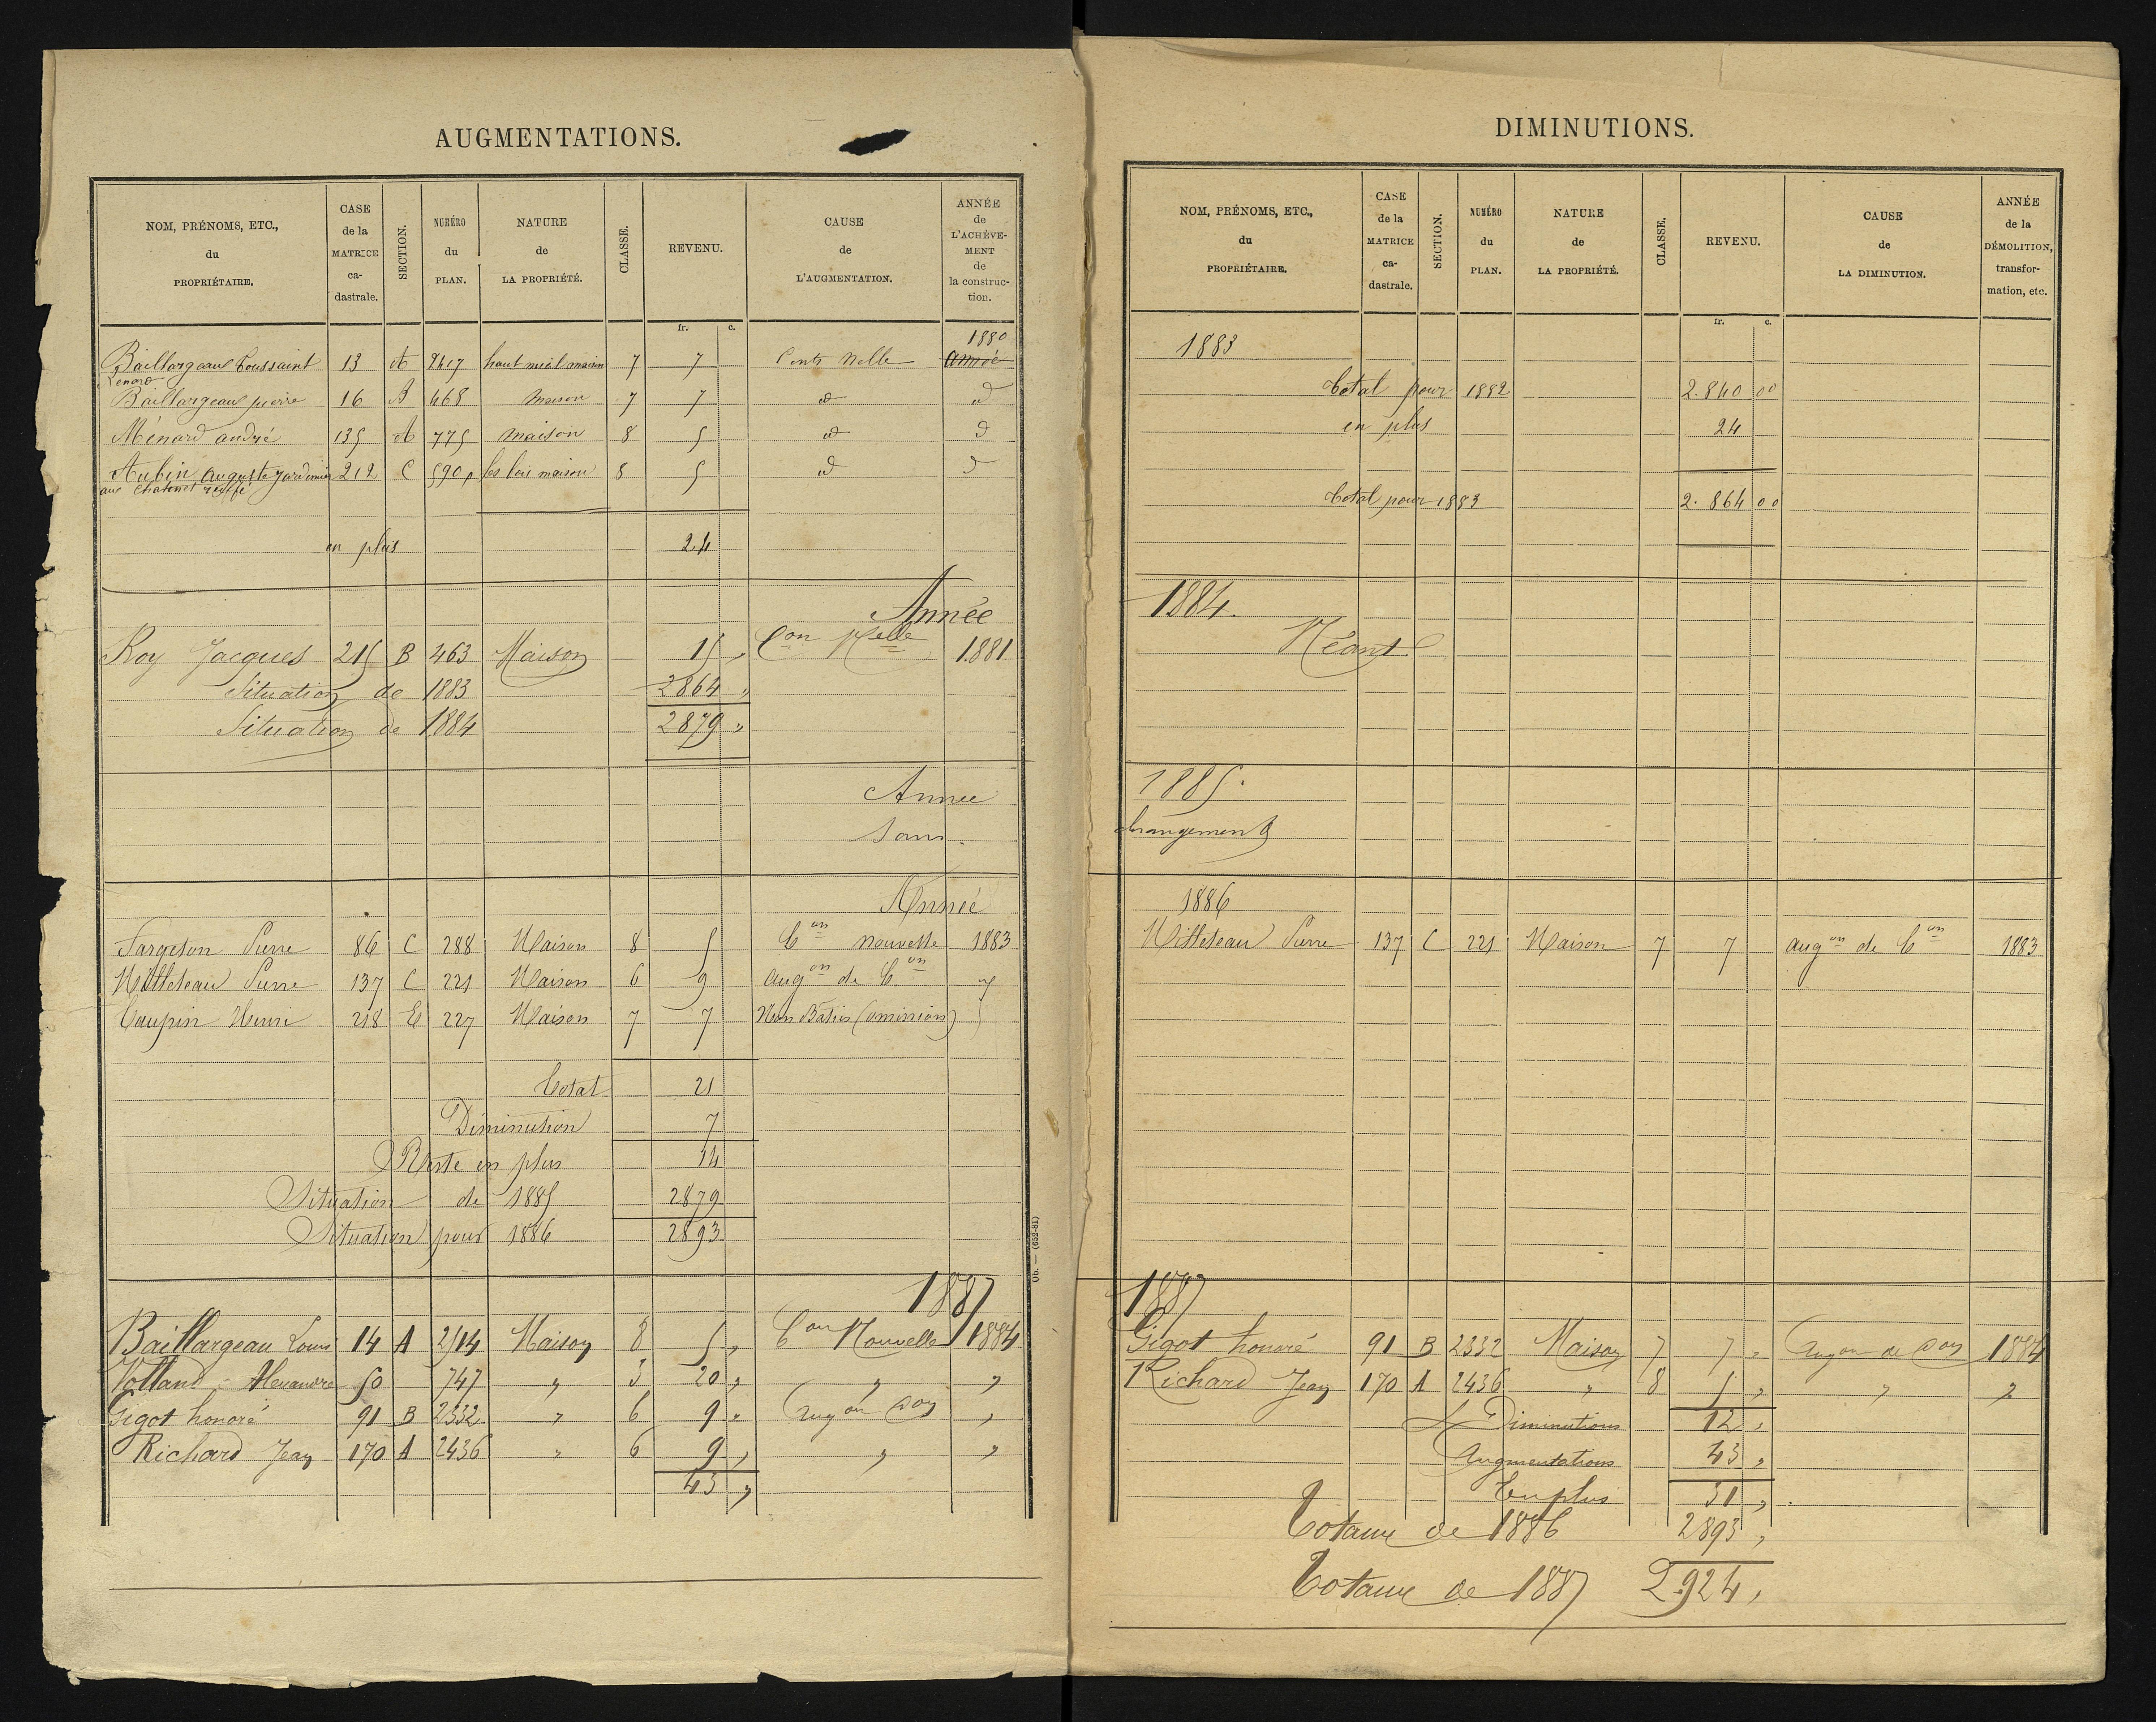 AUGMENTATIONS.
NOM, PRÉNOMS, ETC., du PROPRIÉTAIRE.
CASE de la MATRICE ca- dastrale.
SECTION.
NUMÉRO du PLAN.
NATURE de LA PROPRIÉTÉ.
CLASSE.
REVENU.
CAUSE de L'AUGMENTATION.
ANNÉE de L'ACHÈVE- MENT de la construc- tion.
fr. c.
1880
Baillargeau toussaint 13 A 2417 maison 7 7 Nelle Année
Baillargeau pierre 16 B 468 maison 7 7 d d
Ménard andré 135 A 775 maison 8 5 d d
Aubin Auguste 212 C 590 maison 8 5 d d
en plus 24
Année
Roy Jacques 215 B 463 Maison 15 " Con Nelle 1881
Situation de 1883 2864 "
Situation de 1884 2879 "
Annee
Sans
Année
Fargeson Pierre 86 C 288 Maison 8 5 Con nouvelle 1883
Milleteau Pierre 137 C 221 Maison 6 9 augon de Con
Taupin 218 E 227 Maison 7 7 Non Bâties (omission)
Total 21
Diminution 7
Reste en plus 14
Situation de 1885 2879
Situation pour 1886 2893
1887
Baillargeau Louis 14 A 2514 Maison 8 5 " Con Nouvelle 1884
Volland Alexandre 50 747 " 3 20 " " "
Gigot honoré 91 B 2332 " 6 9 " Augon Con "
Richard Jean 170 A 2436 " 6 9 " " "
43 "
Ob. — (632-81)
DIMINUTIONS.
NOM, PRÉNOMS, ETC., du PROPRIÉTAIRE.
CASE de la MATRICE ca- dastrale.
SECTION.
NUMÉRO du PLAN.
NATURE de LA PROPRIÉTÉ.
CLASSE.
REVENU.
CAUSE de LA DIMINUTION.
ANNÉE de la DÉMOLITION, transfor- mation, etc.
fr. c.
1883
Total pour 1882 2.840 00
en plus 24
Total pour 1883 2.864 00
1884.
Néant
1885.
changement
1886
Milleteau Pierre 137 C 221 Maison 7 7 augon de Con 1883
1887
Gigot honoré 91 B 2332 Maison 7 7 " Augon de Con 1884
Richard Jean 170 A 2436 " 8 5 " " "
Diminutions 12 "
Augmentations 43 "
En plus 31 "
Totaux de 1886 2893 "
Totaux de 1887 2924 "